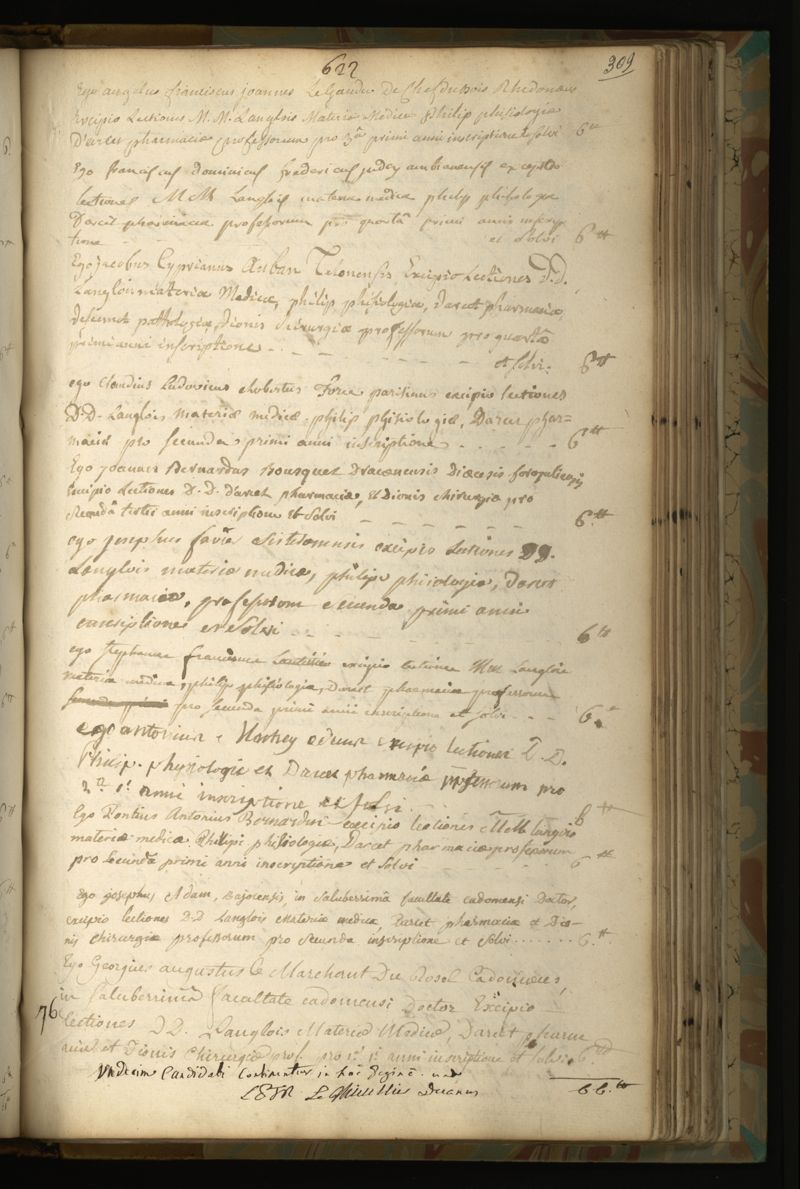 622
309
Ego angelus franciscus joannes LeGendre De Chefdubois Rhedonaeus
Excipio Lectiones M.M. Langlois Materiæ Medicæ Philip phisiologiæ
Darcet pharmaciæ professorum pro 3â primi anni inscriptione et solvi 6
Ego franciscus dominicus fredericus judcy ambianensis excipio
lectiones MM Langlois materiæ medicæ philip phisiologiæ
Darcet pharmaciæ professorum pro quartâ primi anni inscrip
tione et solvi 6tt
Ego jacobus Cyprianus Auban Telonensis Excipio Lectiones D.D.
Langlois materiæ Medicæ, philip phisiologiæ, darcet pharmaciæ,
pathologiæ, Dionis chirurgiæ professorum pro quartâ
primi anni inscriptione et solvi. 6tt
ego claudius Ludovicus robertus parisinus excipio lectiones
D.D. Langlois materiæ medicæ. philip phisiologiæ, Darcet phar=
maciæ pro secunda primi anni inscriptione 6tt
Ego joannes Bernardus Bousquet Dracænensis Diæcesis
Excipio Lectiones D.D. darcet pharmaciæ, et Dionis chirurgiæ pro
secundâ tertii anni inscriptione et Solvi 6tt
ego josephus favre excipio Lectiones DD.
Langlois materiæ medicæ, philipe phisiologiæ, Darcet
pharmaciæ, professorum secunda primi anni
inscriptione et Solvi 6tt
ego stephanus franciscus excipio lectiones MM Langlois
materiæ medicæ, philip phisiologiæ, Darcet pharmaciæ professorum
pro secunda primi anni inscriptione et solvi 6.
ego antonius excipio lectiones D.D.
Philip. physiologiæ et Darcet pharmaciæ professorum pro
2â 1i anni inscriptione et solvi 6tt
Ego Pontius Antonius Bernardini excipio lectiones MM langlois
materiæ medicæ Philipi phisiologiæ, Darcet pharmaciæ professorum
pro secundâ primi anni inscriptione et Solvi 6tt
Ego josephus Adam, Bajocensis, in saluberrimâ facultate cadomensi Doctor,
excipio lectiones D.D Langlois materiæ medicæ, Darcet pharmaciæ et Dio-
nis chirurgiæ professorum pro secunda inscriptione et solvi 6.tt
Ego Georgius augustus le Marchant Du Rosel
in Saluberrimâ facultate cadomensi Doctor Excipio
76
lectiones DD. Langlois Materiæ Medicæ, Darcet pharm
aciæ et Dionis Chirurgiæ prof. pro 2â 1i anni inscriptione et solvi. 6tt
Undecim Candidati Continentur in hac pagina
Le Thieullier Decanus 66.tt